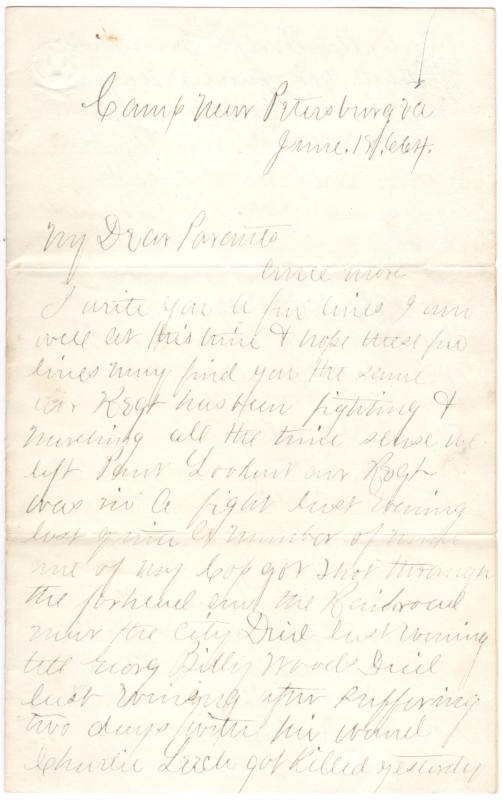 Camp Near Petersburg va
June. 18/.64.
My Dear Parants
Once more
I write you a few lines I am
well at this time & hope these few
lines may find you the same
our Regt has been fighting &
Marching all the time sense we
left Point Lookout our Regt
was in a fight last evening
lost quite a number of men
one of my Cop got shot through
the forhead on the Railroad
near the City Died last evening
Billy Woods Died
last evening after suffering
two days with his wound
Charlie Leech got killed yesterday